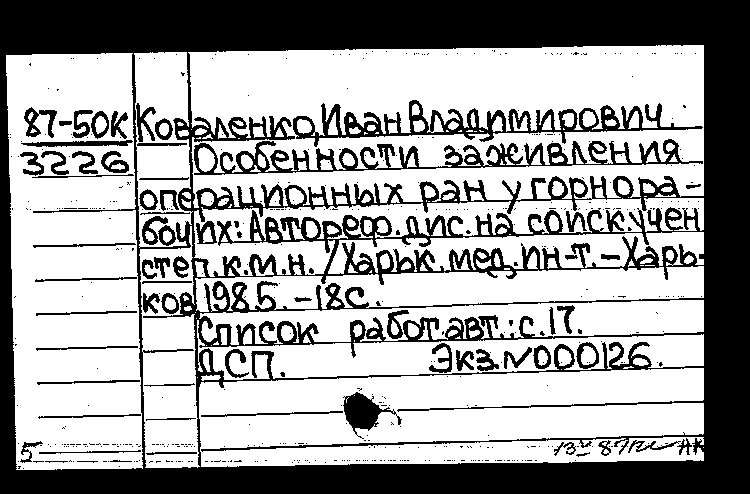 87-50К Коваленко, Иван Владимирович.
3226 Особенности заживления
операционных ран у горнора-
бочих: Автореф. дис. на соиск. учен
степ. к.м.н. / Харьк. мед. ин-т. – Харь-
ков 1985. – 18с.
Список работ авт.: с. 17.
ДСП. Экз. N 000126.
5